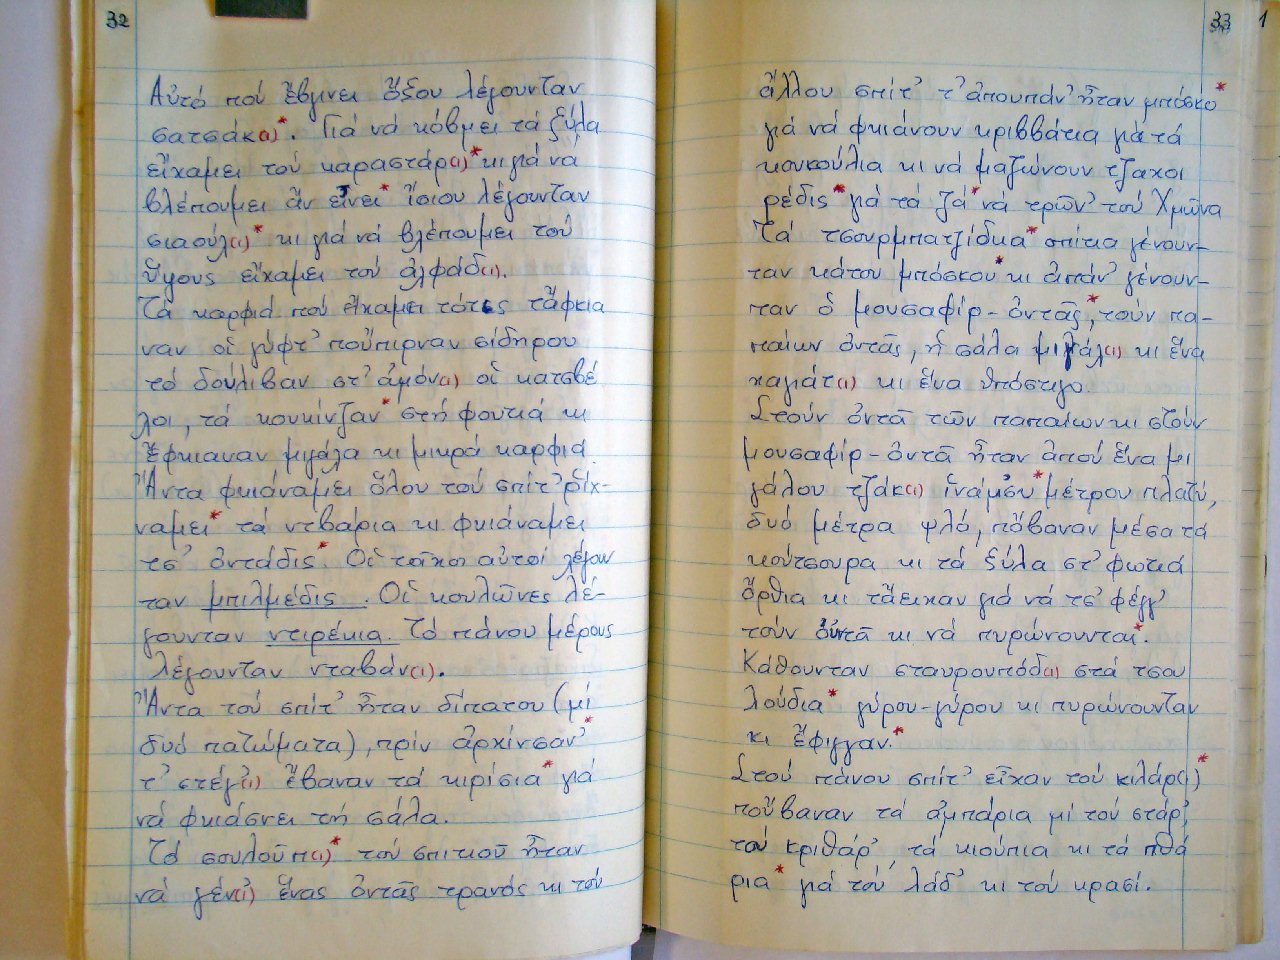 32
Αὐτό πού ἔβγινει ὄξου λέγουνταν
σατσάκ(ι)*. Γιά νά κόβμει τά ξύλα
εἴχαμει τού καραστάρ(ι)* κι γιά να
βλέπουμει ἄν εἶνει* ἴσιου λέγουνταν
σιαούλ(ι)* κι γιά νά βλέπουμει τού
ὕψους εἴχαμει τού ἀλφάδ(ι).
Τά καρφιά πού εἴχαμει τότες τἄφκια
ναν οἱ γύφτ' πούπιρναν σίδηρου
τό δούλιβαν στ' ἀμόν(ι) οἱ κατσβέ
λοι, τά κουκίντζαν* στή φουτιά κι
ἔφκιαναν μιγάλα κι μικρά καρφιά
Ἄντα φκιάναμει ὅλου τού σπίτ' ρίχ-
ναμει* τά ντβάρια κι φκιάναμει
τσ' ὀντάδις*. Οἱ τοῖχοι αὐτοί λέγουν
ταν μπιλμέδις. Οἱ κουλῶνες λέ-
γουνταν ντιρέκια. Τό πάνου μέρους
λέγουνταν νταβάν(ι).
Ἄντα τού σπίτ' ἦταν δίπατου (μί
δυό πατώματα), πρίν ἀρχίνσαν'*
τ' στέγ(ι) ἔβαναν τά κιρίσια* γιά
νά φκιάσνει τή σάλα.
Τό σουλούπ(ι)* τού σπιτιού ἦταν
νά γέν(ι) ἕνας ὀντᾶς τρανός κι τού
33
1
ἄλλου σπίτ' τ' ἀπουπάν' ἦταν μπόσκο*
γιά νά φκιάνουν κριββάτια γιά τά
κουκούλια κι νά μαζώνουν τζαχοι
ρέδις* γιά τά ζά* νά τρῶν' τού Χμῶνα
Τά τσουρμπατζίδκα* σπίτια γένουν-
ταν κάτου μπόσκου* κι ἀπάν' γένουν-
ταν ὁ μουσαφίρ-ὀντᾶς*, τούν πα-
παίων ὀντᾶς, ἡ σάλα μιγάλ(ι) κι ἕνα
χαγιάτ(ι) κι ἕνα ὑπόστιγο.
Στούν ὀντᾶ τῶν παπαίων κι στούν
μουσαφίρ-ὀντᾶ ἦταν ἀπού ἕνα μι
γάλου τζάκ(ι) ἱνάμσυ* μέτρου πλατύ,
δυό μέτρα ψλό, πὄβαναν μέσα τά
κούτσουρα κι τά ξύλα στ' φωτιά
ὄρθια κι τἄειχαν γιά νά τσ' φέγγ'
τούν ὀντᾶ κι νά πυρώνουνται*.
Κάθουνταν σταυρουπόδ(ι) στά τσου
λούδια* γύρου-γύρου κι πυρώνουνταν
κι ἔφιγγαν.*
Στού πάνου σπίτ' εἶχαν τού κιλάρ(ι)*
ποὔβαναν τά ἀμπάρια μί τού στάρ',
τού κριθάρ', τά κιούπια κι τά πθά
ρια* γιά τού λάδ' κι τού κρασί.